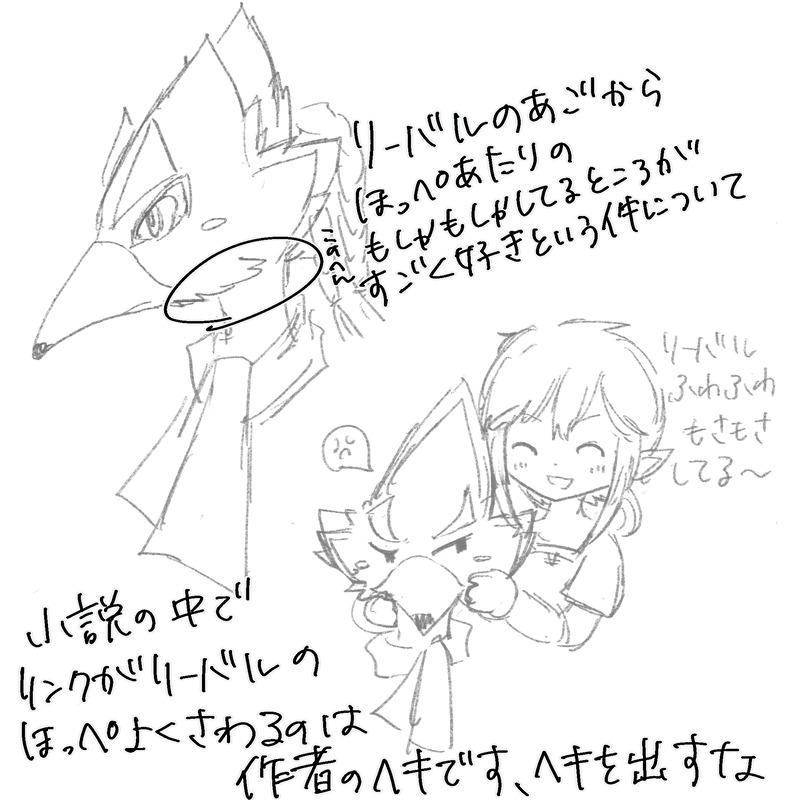 リーバルのあごから
ほっぺあたりの
もしゃもしゃしてるところが
すごく好きという件について
このへん
リーバル
ふわふわ
もさもさ
してる〜
小説の中で
リンクがリーバルの
ほっぺよくさわるのは
作者のヘキです、ヘキを出すな